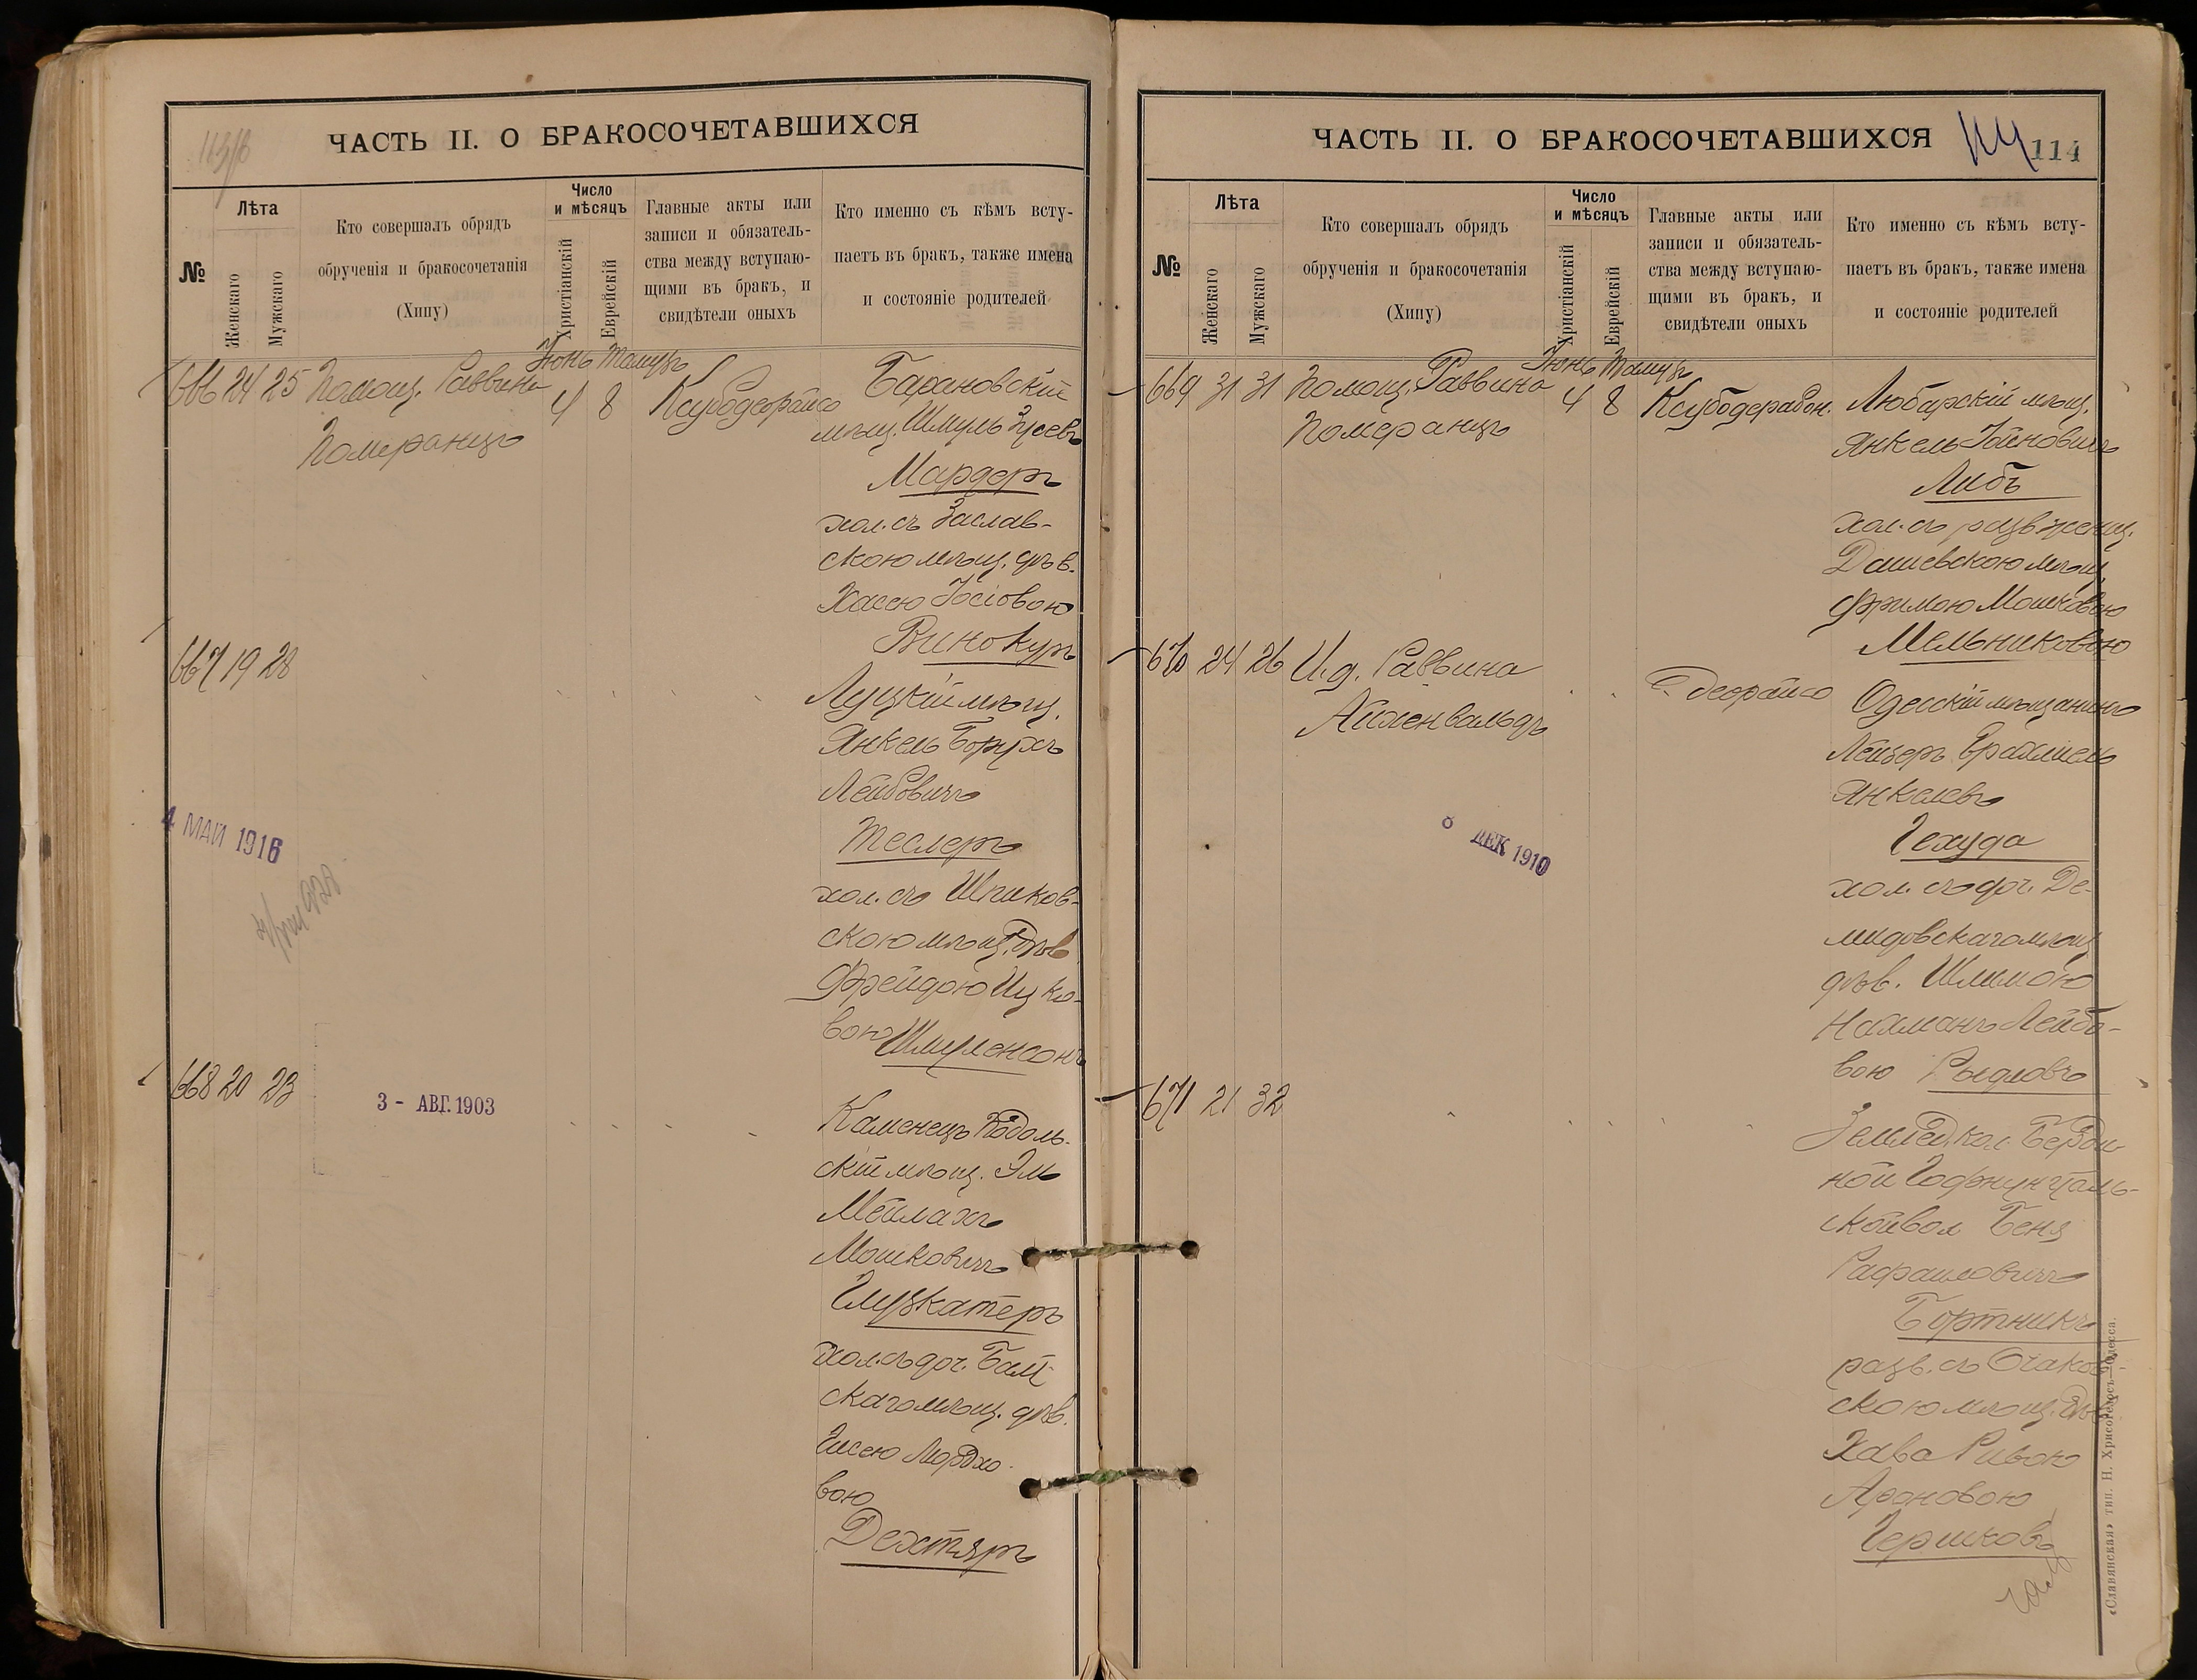 ЧАСТЬ II. О БРАКОСОЧЕТАВШИХСЯ
№
Лѣта
Женскаго
Мужскаго
Кто совершалъ обрядъ
обрученія и бракосочетанія
(Хипу)
Число
и мѣсяцъ
Христіанскій
Еврейскій
Главные акты или
записи и обязатель-
ства между вступаю-
щими въ бракъ, и
свидѣтели оныхъ
Кто именно съ кѣмъ всту-
паетъ въ бракъ, также имена
и состояніе родителей
Іюнь Тамузъ
666 24 25 Помощ. Раввина
Померанцъ
4 8
Барановскій
мѣщ. Шмуль Зусевъ
Мардеръ
хол. съ Заслав-
скою мѣщ. дѣв.
Хасею Іосіовою
Винокуръ
667 19 28
Луцкій мѣщ.
Янкель Борухъ
Лейбовичъ
Теслеръ
хол. съ Шпиков-
скою мѣщ. дѣв.
Фрейдою Ицко-
вою Шмуленсонъ
4 МАЙ 1916
668 20 23
3 - АВГ. 1903
Каменецъ Подоль-
скій мѣщ. Эль
Мейлахъ
Мошковичъ
Глузкатеръ
хол. съ доч. Балт-
скаго мѣщ. дѣв.
Гисею Мордко-
вою
Дехтяръ
ЧАСТЬ II. О БРАКОСОЧЕТАВШИХСЯ
114
114
№
Лѣта
Женскаго
Мужскаго
Кто совершалъ обрядъ
обрученія и бракосочетанія
(Хипу)
Число
и мѣсяцъ
Христіанскій
Еврейскій
Главные акты или
записи и обязатель-
ства между вступаю-
щими въ бракъ, и
свидѣтели оныхъ
Кто именно съ кѣмъ всту-
паетъ въ бракъ, также имена
и состояніе родителей
Іюнь Тамузъ
669 31 31 Помощ. Раввина
Померанцъ
4 8 Ксубодерабон.
Любарскій мѣщ.
Янкель Іойновичъ
Либъ
хол. съ разв. женщ.
Дашевскою мѣщ.
Фримою Мошковою
Мельниковою
670 24 26 И. д. Раввина
Айхенвальдъ
Одесскій мѣщанинъ
Лейзеръ Ерахмиель
Янкелевъ
Гехуда
хол. съ доч. Де-
мидовскаго мѣщ.
дѣв. Шлимою
Лейбо-
вою
ДЕК 1910
671 21 32
Бене
Рафаиловичъ
Бортникъ
разв. съ Очаков-
скою мѣщ. дѣв.
Хава Ривою
Ароновою
Гершковъ
«Славянская» тип. Н. Хрисогелосъ—Одесса.